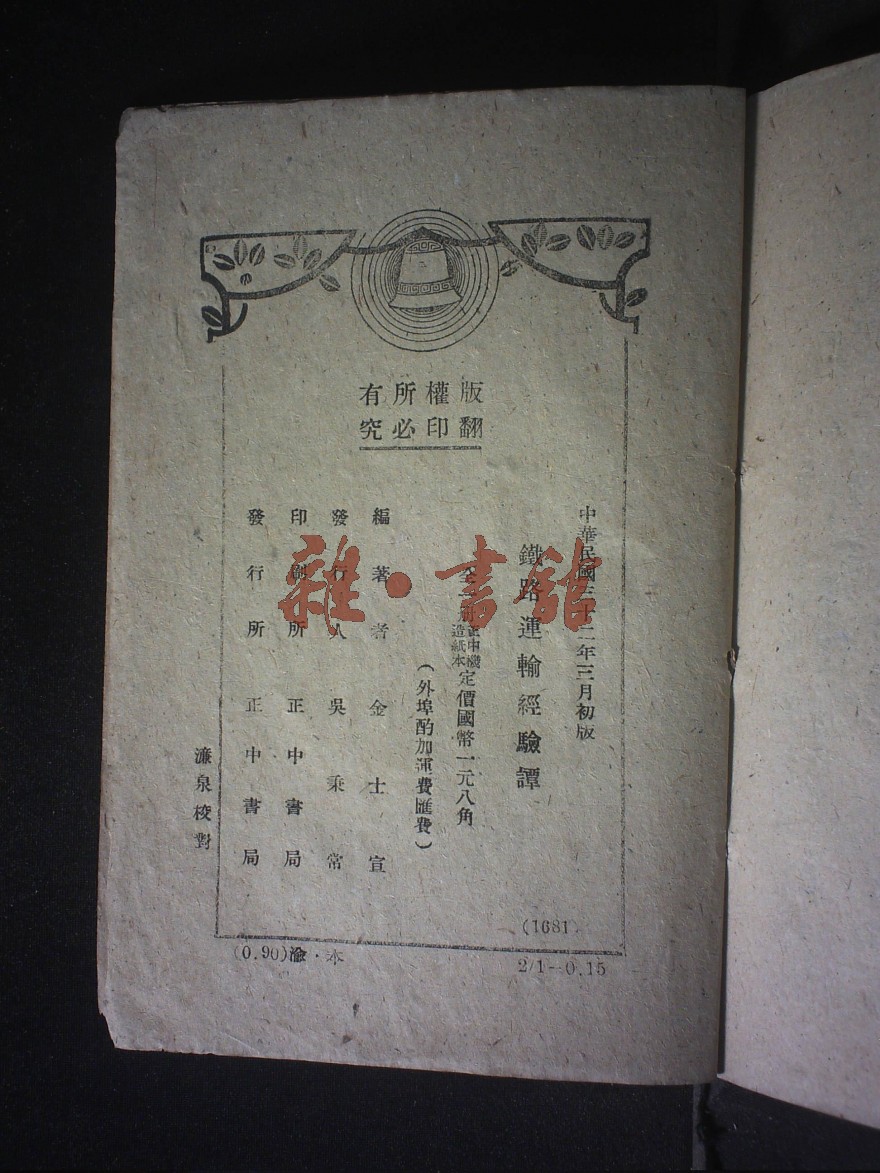 版權所有
翻印必究
中華民國三十二年三月初版
鐵路運輸經驗譚
全一冊
正中機
造紙本
定價國幣一元八角
(外埠酌加運費匯費)
編著者金士宣
發行人吳秉常
印刷所正中書局
發行所正中書局
濂泉校對
(1681)
(0.90)渝·本
2/1—0.15
雜·書館